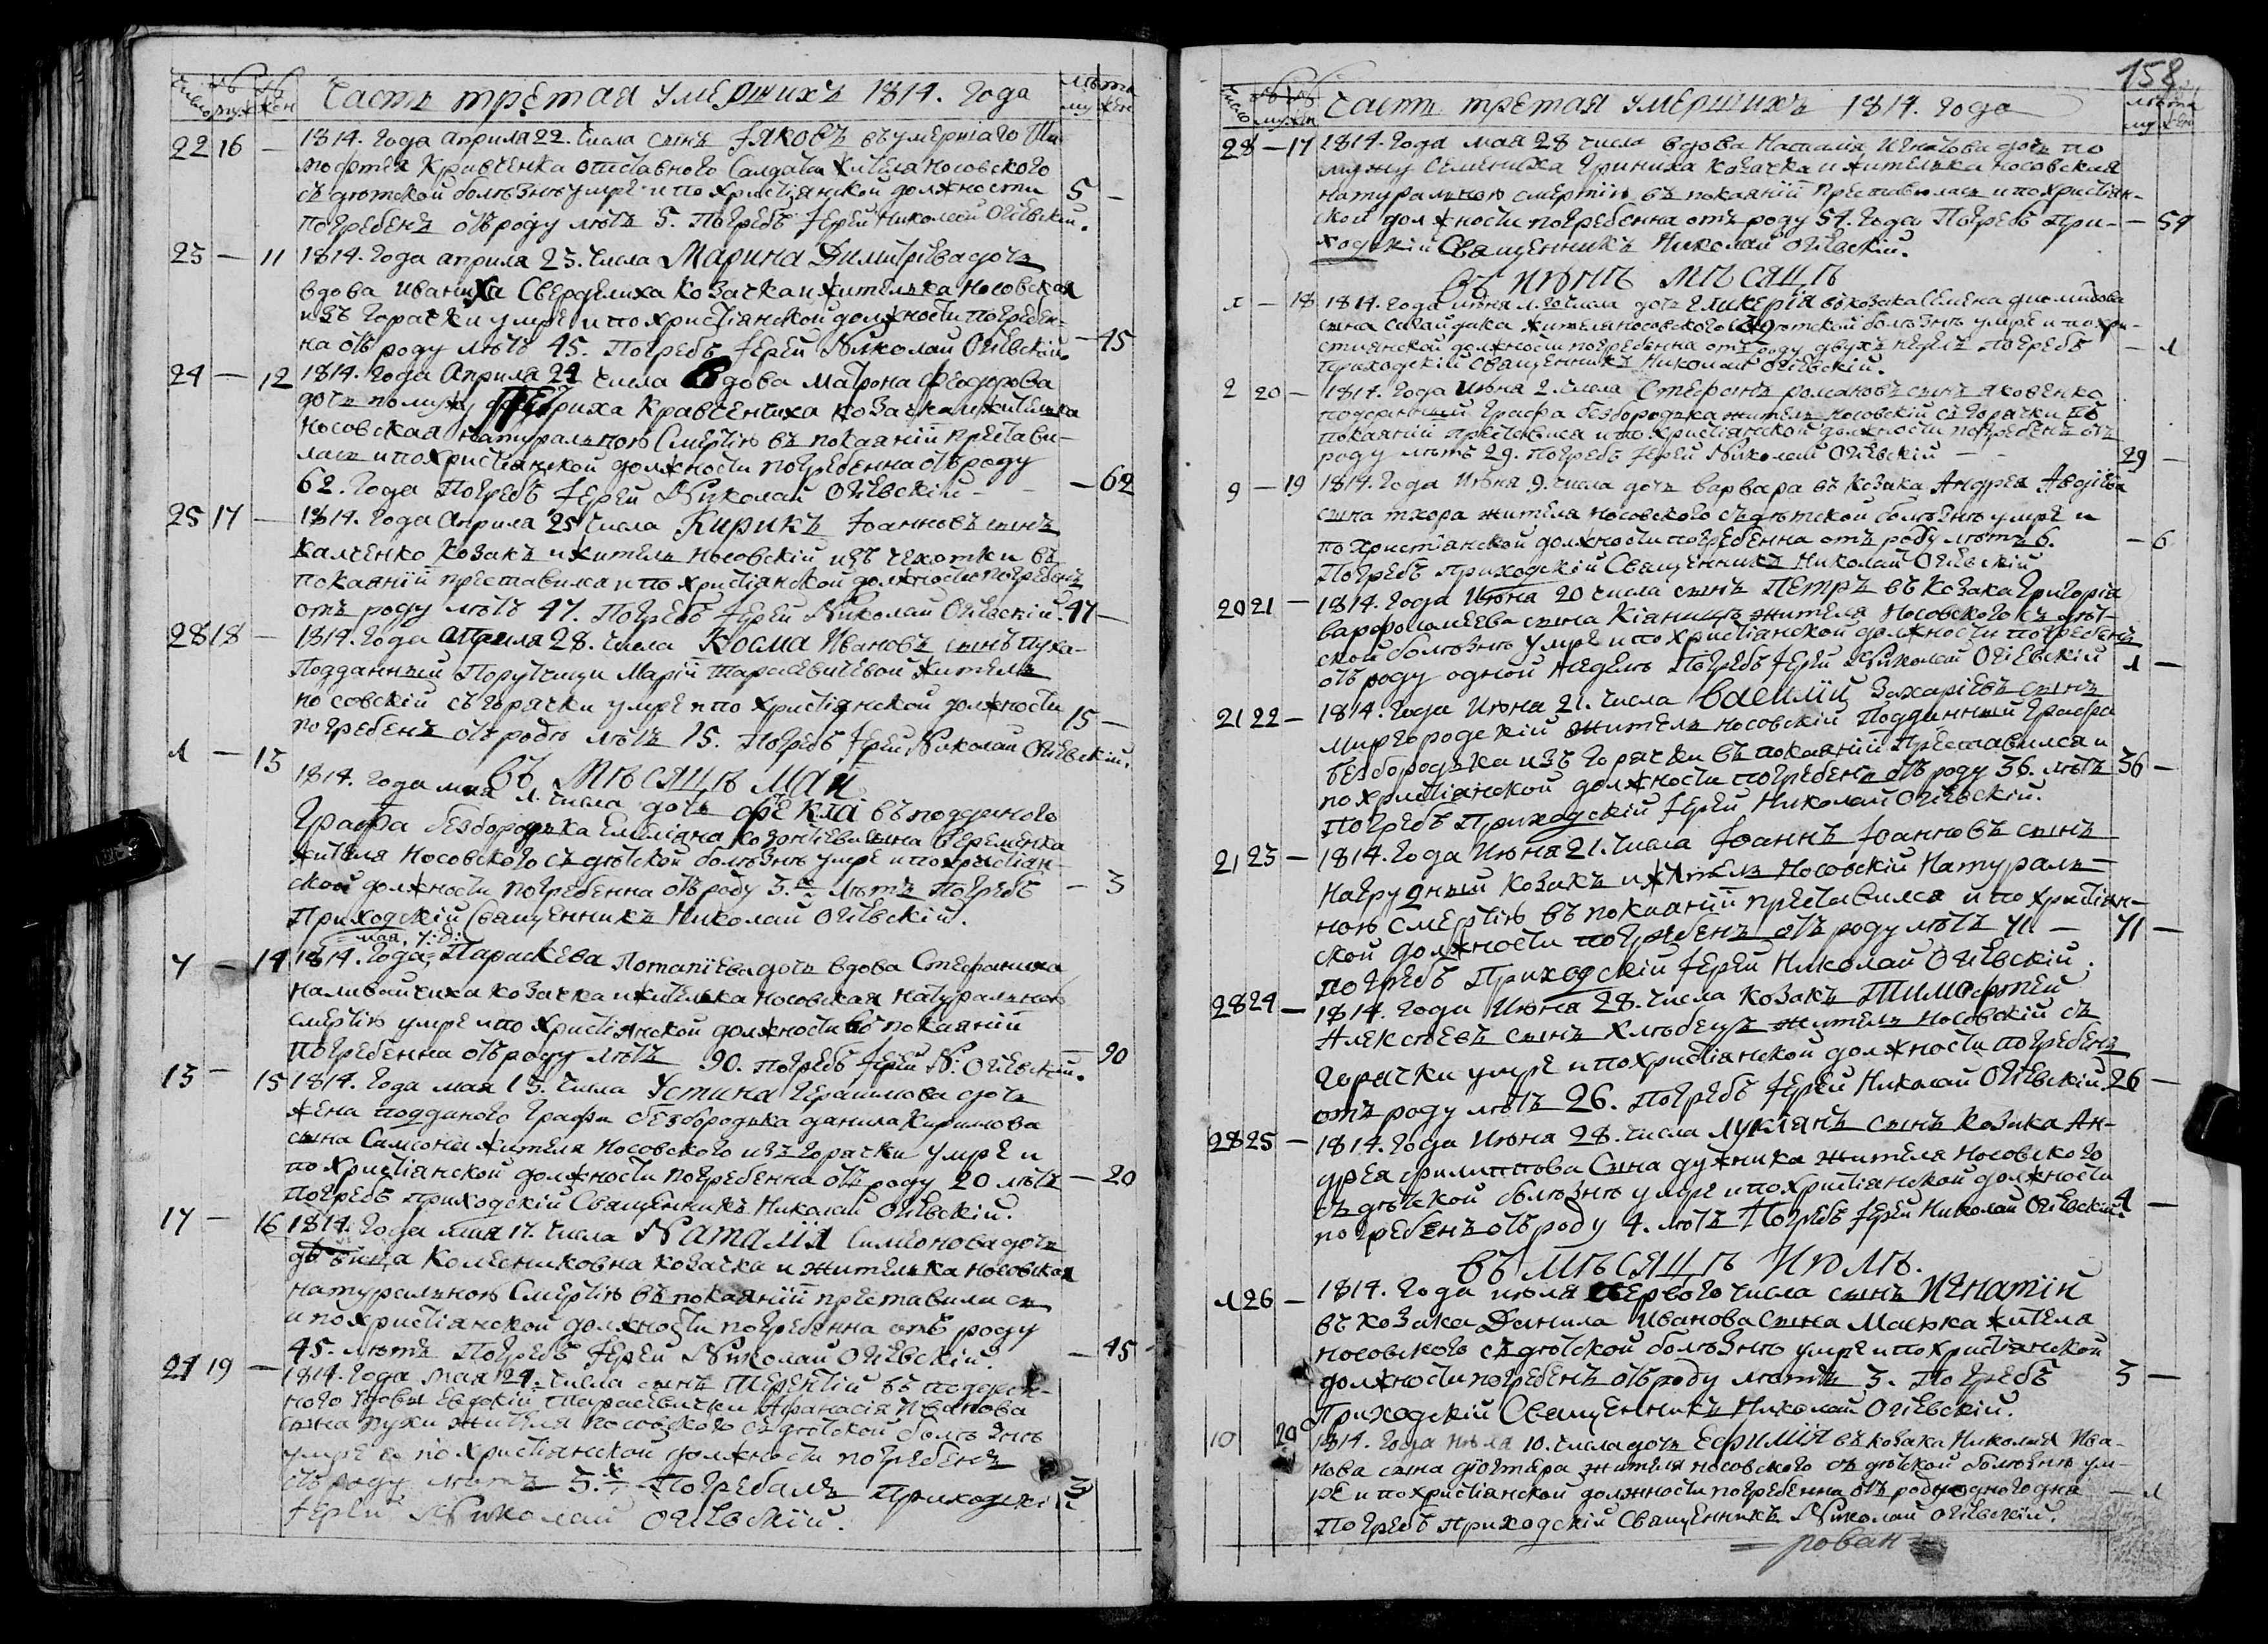 число № муж № жен Часть третая умершихъ 1814. года лѣта му жен
22 16 — 1814. года априля 22. числа сынъ Іяковъ въ умершаго Ти-
мофтея Кравченка отставного Салдата жителя носовского
съ дѣтской болѣзнѣ умре и по христіянской должности 5 —
погребенъ отъ роду лѣтъ 5. Погребъ Іерей Николай Огіевскій.
23 — 11 1814. года априля 23. числа Марина Димитріева дочь
вдова Иваниха Свердлиха козачка и жителька носовская
изъ горячки умре и по христіянской должности погребен-
на отъ роду лѣтъ 45. Погребъ Іерей Николай Огіевскій. — 45
24 — 12 1814. года Априля 24 числа Вдова Матрона Феодорова
дочь по мужу Кравченчиха козачка и жителька
носовская натуральною смертію въ покаяніи престави-
лась и по христіянской должности погребенна отъ роду
62. года Погребъ Іерей Николай Огіевскій — — 62
25 17 — 1814. года Априля 25 числа Кирикъ Іоанновъ сынъ
Калченко козакъ и житель носовскій изъ чехотки въ
покаяніи преставился и по христіянской должности погребенъ
отъ роду лѣтъ 47. Погребъ Іерей Николай Огіевскій. 47 —
28 18 — 1814. года Априля 28. числа Козма Ивановъ сынъ пуха
Подданный Порутчици Маріи Тарасевичевой житель
носовскій съ горячки умре и по христіянской должности 15 —
погребенъ отъ роду лѣтъ 15. Погребъ Іерей Николай Огіевскій.
въ мѣсяцѣ маи
1 — 13 1814. года мая 1. числа дочь Фекла въ подданого
Графа безбородька Емелиана сына веременка
жителя Носовского съ дѣтской болѣзнѣ умре и по христіян-
ской должности погребенна отъ роду 3. лѣтъ погребъ — 3
Приходскій Священникъ Николай Огіевскій.
мая, 7: д:
7 — 14 1814. года, Параскева Потапіева дочь вдова Стефаниха
наливайчиха козачка и жителька носовская натуральною
смертію умре и по христіянской должности во покаяніи
погребенна отъ роду лѣтъ 90. погребъ Іерей Н: Огіевскій. — 90
13 — 15 1814. года мая 13. числа Устина Герасимова дочь
жена подданого Графа безбородька данила Киримова
сына Самсона жителя Носовского изъ горячки умре и
по христіянской должности погребенна отъ роду 20 лѣтъ — 20
погребъ приходскій Священникъ Николай Огіевскій.
17 — 16 1814. года мая 17. числа Наталія Симеонова дочь
дѣвица Колесниковна козачка и жителька носовская
натуральною смертію въ покаяніи преставилась
и по христіянской должности погребенна отъ роду
45. лѣтъ Погребъ Іерей Николай Огіевскій. — 45
24 19 — 1814. года мая 24. числа сынъ Терентій въ поддан-
ного вдовы Евдокіи Тарасевички Афанасія Иванова
сына пухи жителя носовского съ дѣтской болѣзнѣ
умре и по христіянской должности погребенъ
отъ роду лѣтъ 3. Погребалъ приходскій 3
Іерей Николай Огіевскій.
158
число № муж № жен Часть третая умершихъ 1814. года лѣта му жен
28 — 17 1814. года мая 28 числа вдова Наталія Игнатова дочь по
мужу Семениха Гриниха козачка и жителька носовская
натуральною смертію въ покаяніи Преставилась и по христіян-
ской должности погребенна отъ роду 57. года Погребъ при- — 57
ходскій Священникъ Николай Огіевскій.
въ июнѣ мѣсяцѣ
1 — 18 1814. года июня 1. числа дочь Гликерія въ козака Семена диомидова
сына сагайдака жителя носовского съ дѣтской болѣзнѣ умре и по хри-
стиянской должности погребенна отъ роду двухъ недель погребъ — 1
приходскій священникъ Николай Огіевскій.
2 20 — 1814. года Июня 2. числа Стефанъ романовъ сынъ яковенко
подданный Графа безбородька житель носовскій съ горячки въ
покаяніи преставился и по христіянской должности погребенъ отъ
роду лѣтъ 29. погребъ Іерей Николай Огіевскій — 29 —
9 — 19 1814. года Июня 9. числа дочь варвара въ козака Андрея Авдіева
сына тхора жителя носовского съ дѣтской болѣзнѣ умре и
по христіянской должности погребенна отъ роду лѣтъ 6. — 6
Погребъ приходскій Священникъ Николай Огіевскій
20 21 — 1814. года Июня 20 числа сынъ Петръ въ козака Григорія
варфоломеева сына Кіяници жителя носовского съ дѣт-
ской болѣзнѣ умре и по христіянской должности погребенъ
отъ роду одной недель Погребъ Іерей Николай Огіевскій 1 —
21 22 — 1814. года Июня 21. числа Василій Захаріевъ сынъ
миргородскій житель носовскій Подданный Графа
безбородька изъ горячки въ покаяніи Преставился и
по христіянской должности погребенъ отъ роду 36. лѣтъ 36 —
погребъ Приходскій Іерей Николай Огіевскій.
21 23 — 1814. года Июня 21. числа Іоаннъ Іоанновъ сынъ
нагрудный козакъ и житель Носовскій Натураль-
ною смертію въ покаяніи преставился и по христіян-
ской должности погребенъ отъ роду лѣтъ 71. — 71 —
погребъ Приходскій Іерей Николай Огіевскій.
28 24 — 1814. года Июня 28. числа козакъ Тимофтей
Алексѣевъ сынъ хлѣбецъ житель носовскій съ
горячки умре и по христіянской должности погребенъ
отъ роду лѣтъ 26. погребъ Іерей Николай Огіевскій 26 —
28 25 — 1814. года Июня 28. числа лукіянъ сынъ козака Ан-
дрея филиппова Сына дужника жителя носовского
съ дѣтской болѣзнѣ умре и по христіянской должности
погребенъ отъ роду 4. лѣтъ Погребъ Іерей Николай Огіевскій. 4 —
въ мѣсяцѣ Июлѣ.
1 26 — 1814. года июля первого числа сынъ Игнатій
въ козака Данила Иванова Сына Масюка жителя
носовского съ дѣтской болѣзнѣ умре и по христіянской
должности погребенъ отъ роду лѣтъ 3. Погребъ 3 —
Приходскій Священникъ Николай Огіевскій.
10 20 1814. года июля 10. числа дочь Евфимія въ козака Николая Ива-
нова сына жителя носовского съ дѣтской болѣзнѣ ум-
ре и по христіянской должности погребенна отъ роду одного дня — 1
Погребъ приходскій Священникъ Николай Огіевскій.
= рован =